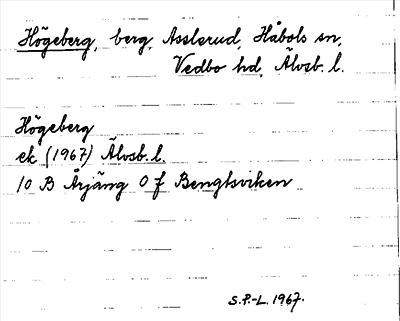 Högeberg, berg, Asslerud, Håbols sn,
Vedbo hd, Älvsb. l.
Högeberg
ek (1967) Älvsb. l.
10 B Årjäng 0 f Bengtsviken
S.P.-L. 1967.